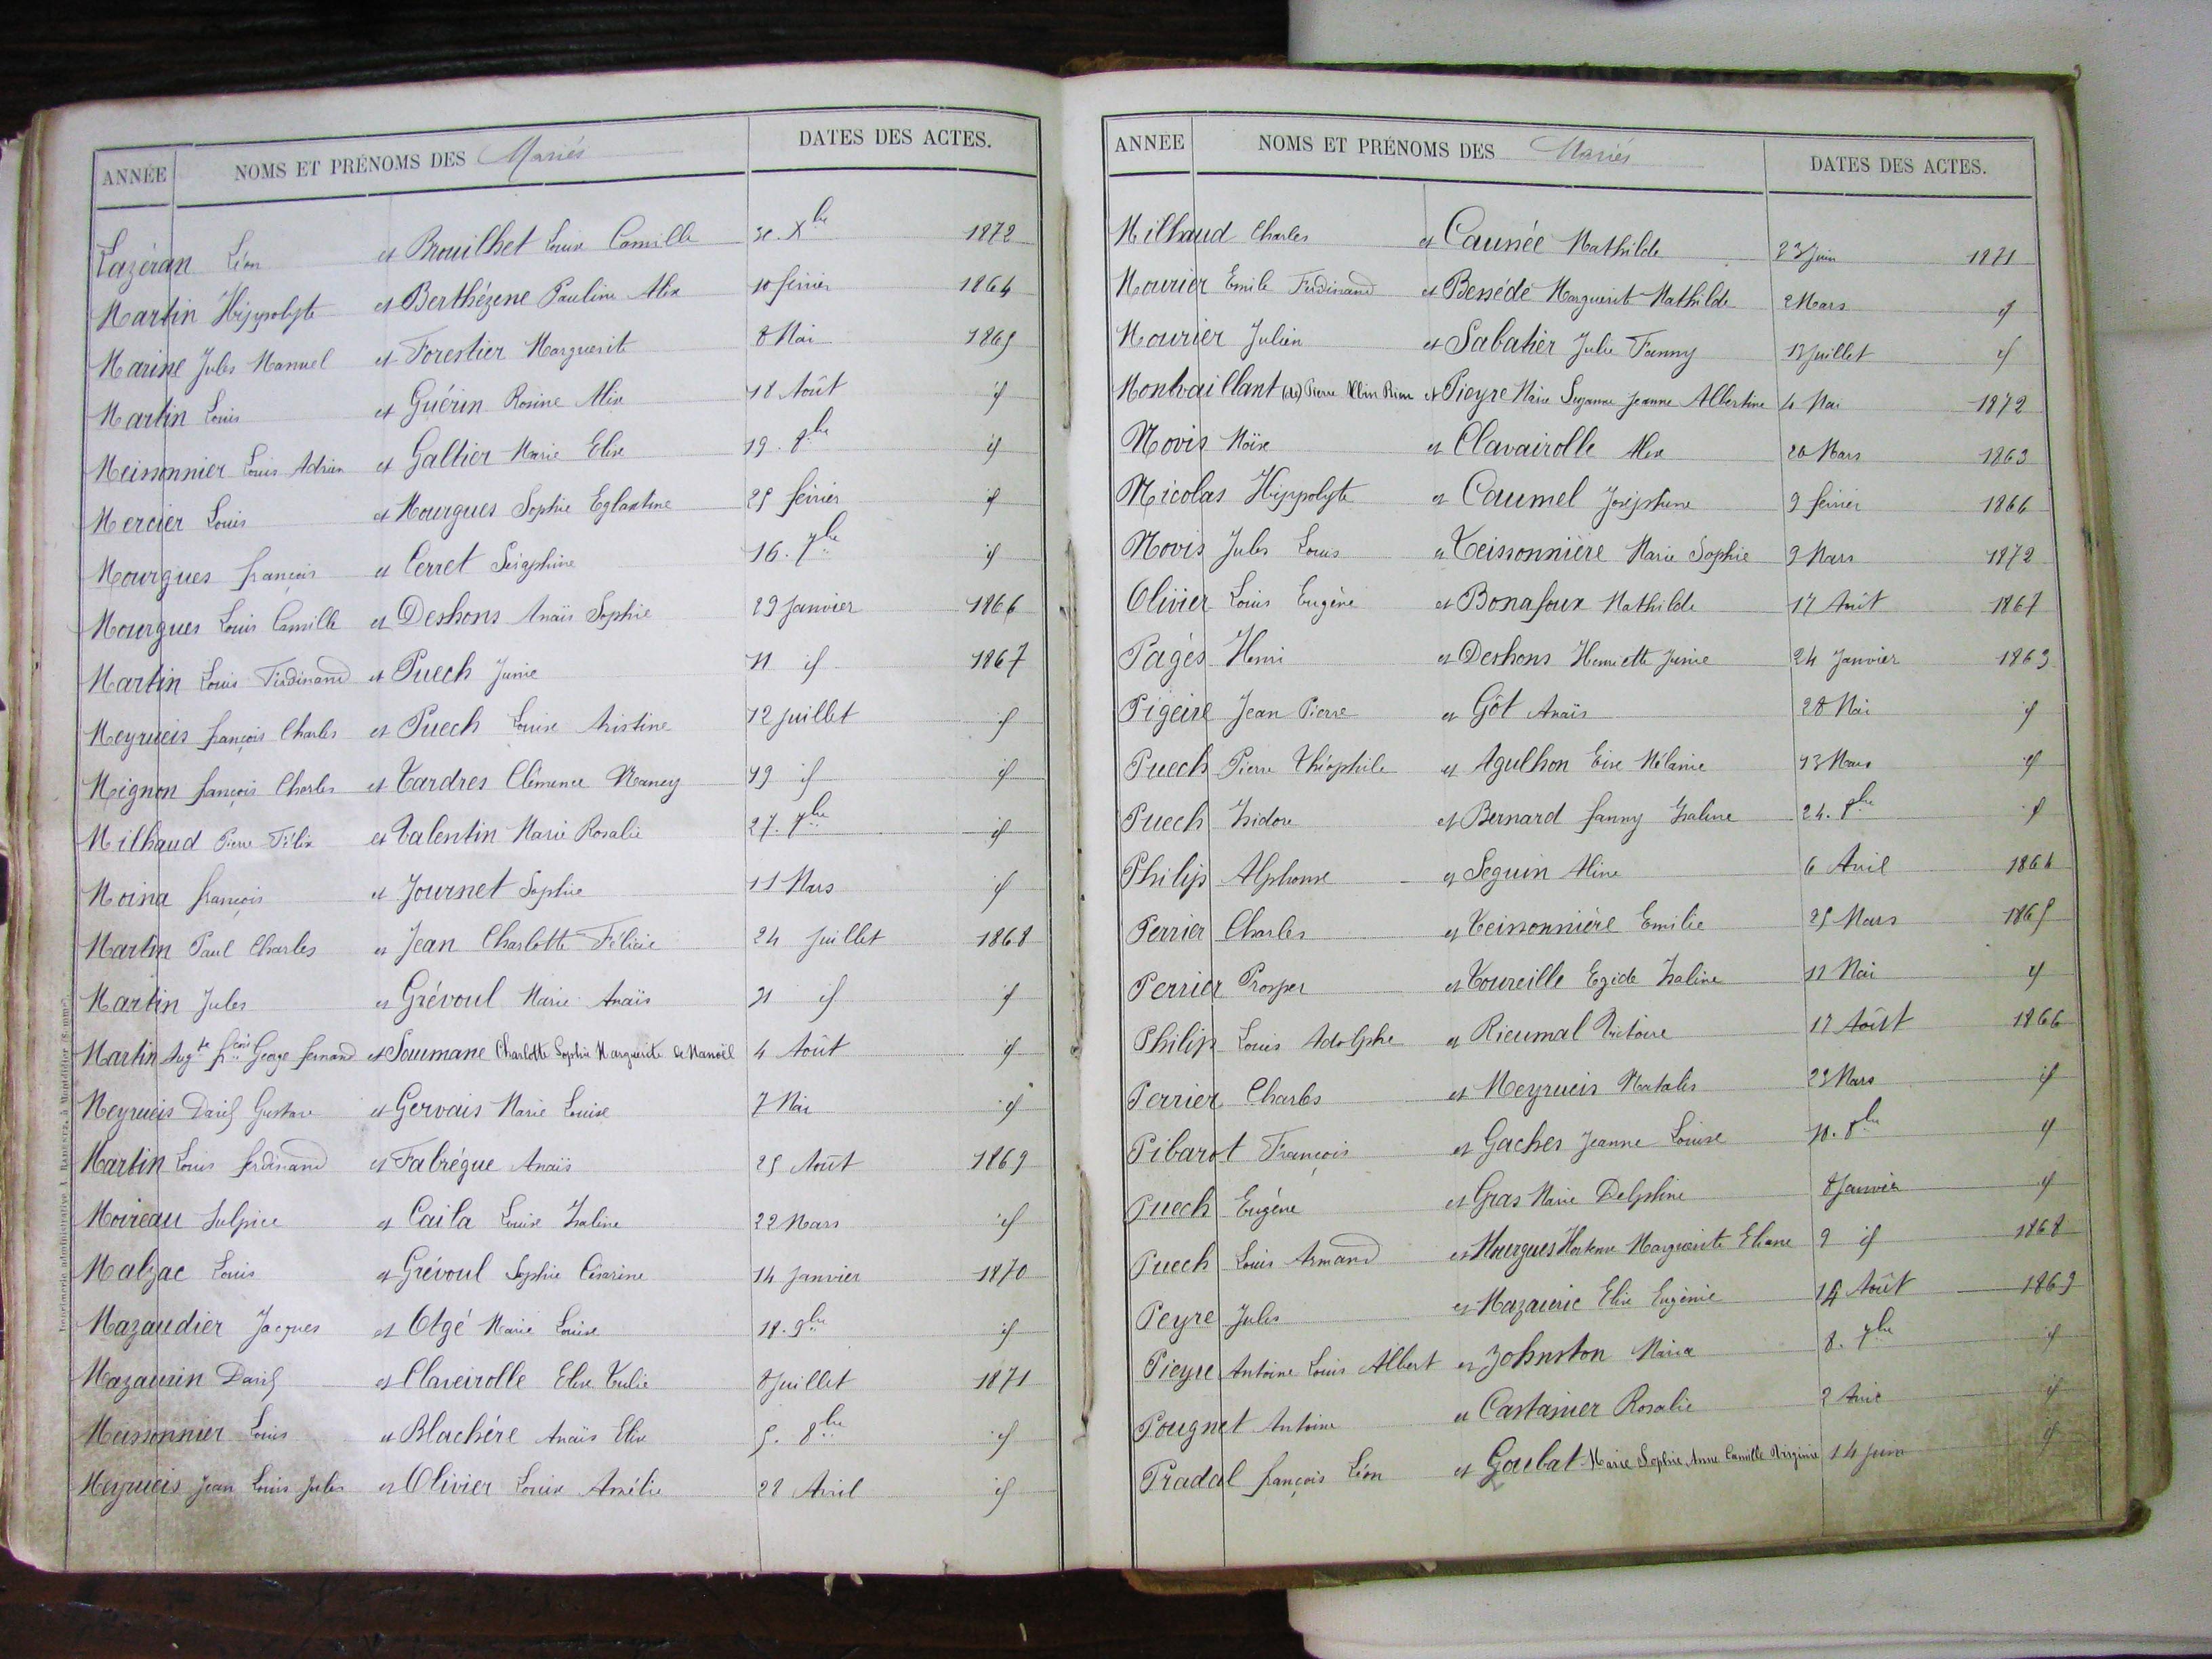 ANNÉE NOMS ET PRÉNOMS DES Mariés DATES DES ACTES.
Lazéran Léon et Brouilhet Louise Camille Xbre 1872
Martin Hippolyte et Berthézene Pauline Alix 10 février 1864
Marine Jules Manuel et Forestier Marguerite 8 Mai 1865
Martin Louis et Guérin Rosine Alix 18 Août if
Meissonnier Louis Adrien et Galtier Marie Elise 19. 8bre if
Mercier Louis et Mourgues Sophie Eglantine 25 février if
Mourgues françois et Cerret Séraphine 16. 7bre if
Mourgues Louis Camille et Deshons Anaïs Sophie 29 Janvier 1866
Martin Louis Ferdinand et Puech Junie 11 if 1867
Meyrueis françois Charles et Puech Louise Aristine 12 juillet if
Mignon françois Charles et Tardres Clémence Nancy 19 if if
Milhaud Pierre Félix et Valentin Marie Rosalie 27. 7bre if
Moina françois et Journet Sophie 11 Mars if
Martin Paul Charles et Jean Charlotte Félicie 24 juillet 1868
Martin Jules et Grévoul Marie Anaïs 31 if if
Martin Augte George fernand et Soumane Charlotte Sophie Marguerite de Manoël 4 Août if
Meyrueis David Gustave et Gervais Marie Louise 7 Mai if
Martin Louis ferdinand et Fabrégue Anaïs 25 Août 1869
Moireau Sulpice et Caila Louise Isaline 22 Mars if
Malzac Louis et Grévoul Sophie Césarine 14 Janvier 1870
Mazaudier Jacques et Olgé Marie Louise 18. 9bre if
Mazaurin David et Claveirolle Elise Tulie 8 Juillet 1871
Meissonnier Louis et Blachére Anaïs Elise 5. 8bre if
Meyrueis Jean Louis Jules et Olivier Louise Amélie 22 Avril if
Imprimerie administrative à Montdidier
ANNÉE NOMS ET PRÉNOMS DES Mariés DATES DES ACTES.
Milhaud Charles et Caunée Mathilde 23 Juin 1871
Mourier Emile Ferdinand et Bessédé Marguerite Mathilde 2 Mars if
Mourier Julien et Sabatier Julie Fanny 13 Juillet if
Montvaillant (de) Pierre Albin et Pieyre Marie Suzanne Jeanne Albertine 4 Mai 1872
Novis Moïse et Clavairolle Alix 20 Mars 1863
Nicolas Hippolyte et Caumel Joséphine 9 février 1866
Novis Jules Louis et Teissonnière Marie Sophie 9 Mars 1872
Olivier Louis Eugène et Bonafoux Mathilde 17 Août 1867
Pagès Henri et Deshons Henriette Junie 24 Janvier 1863
Pigeire Jean Pierre et Gôt Anaïs 28 Mai if
Puech Pierre Théophile et Agulhon Mélanie 13 Mars if
Puech Isidore et Bernard fanny Isaline 24. 8bre if
Philip Alphonse et Seguin Aline 6 Avril 1864
Perrier Charles et Teissonnière Emilie 25 Mars 1865
Perrier Prosper et Toureille Egide Isaline 11 Mai if
Philip Louis Adolphe et Rieumal Victoire 17 Août 1866
Perrier Charles et Meyrueis Natalis 29 Mars if
Pibarot François et Gaches Jeanne Louise 10. 8bre if
Puech Eugène et Gras Marie Delphine 8 Janvier if
Puech Louis Armand et Mourgues Hortense Marguerite Eliane 9 if 1868
Peyre Jules et Mazauric Elise Eugénie 14 Août 1869
Pieyre Antoine Louis Albert et Johnston Maria 8. 7bre if
Pougnet Antoine et Castanier Rosalie 2 if
Pradal françois Léon et Goubat Marie Sophie Anne Camille Virginie 14 Juin if